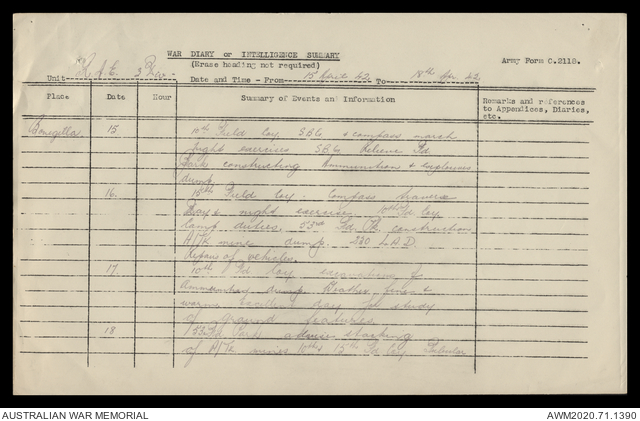 WAR DIARY or INTELLIGENCE SUMMARY
(Erase heading not required)
Army Form C.2118.
Unit R.A.E. 3 Div - Date and Time - From 15 42 To 18th Apr 42
Place Date Hour Summary of Events and Information Remarks and references to Appendices, Diaries, etc.
Bonegilla 15 10th Field Coy. & compass march
night exercises Relieve Fd
Park constructing Ammunition & explosives
dump.
16. 15th Field Coy. Compass traverse
Day & night exercise. 10th Fd Coy.
camp duties. 53rd Fd. Pk. construction
A/Tk mine dump. L.A.D.
Repair of vehicles.
17. 10th Fd Coy excavation of
Ammunition dump. Weather fine &
warm. Excellent day for study
of ground features.
18 53 Fd Park stacking
of A/Tk mines 10th & 15th Fd Coy
AUSTRALIAN WAR MEMORIAL
AWM2020.71.1390